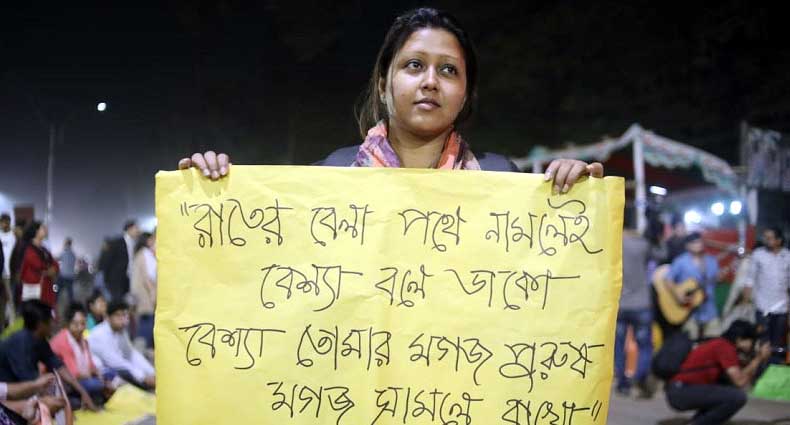 "রাতের বেলা পথে নামলেই
বেশ্যা বলে ডাকো
বেশ্যা তোমার মগজ পুরুষ
মগজ সামলে রাখো"